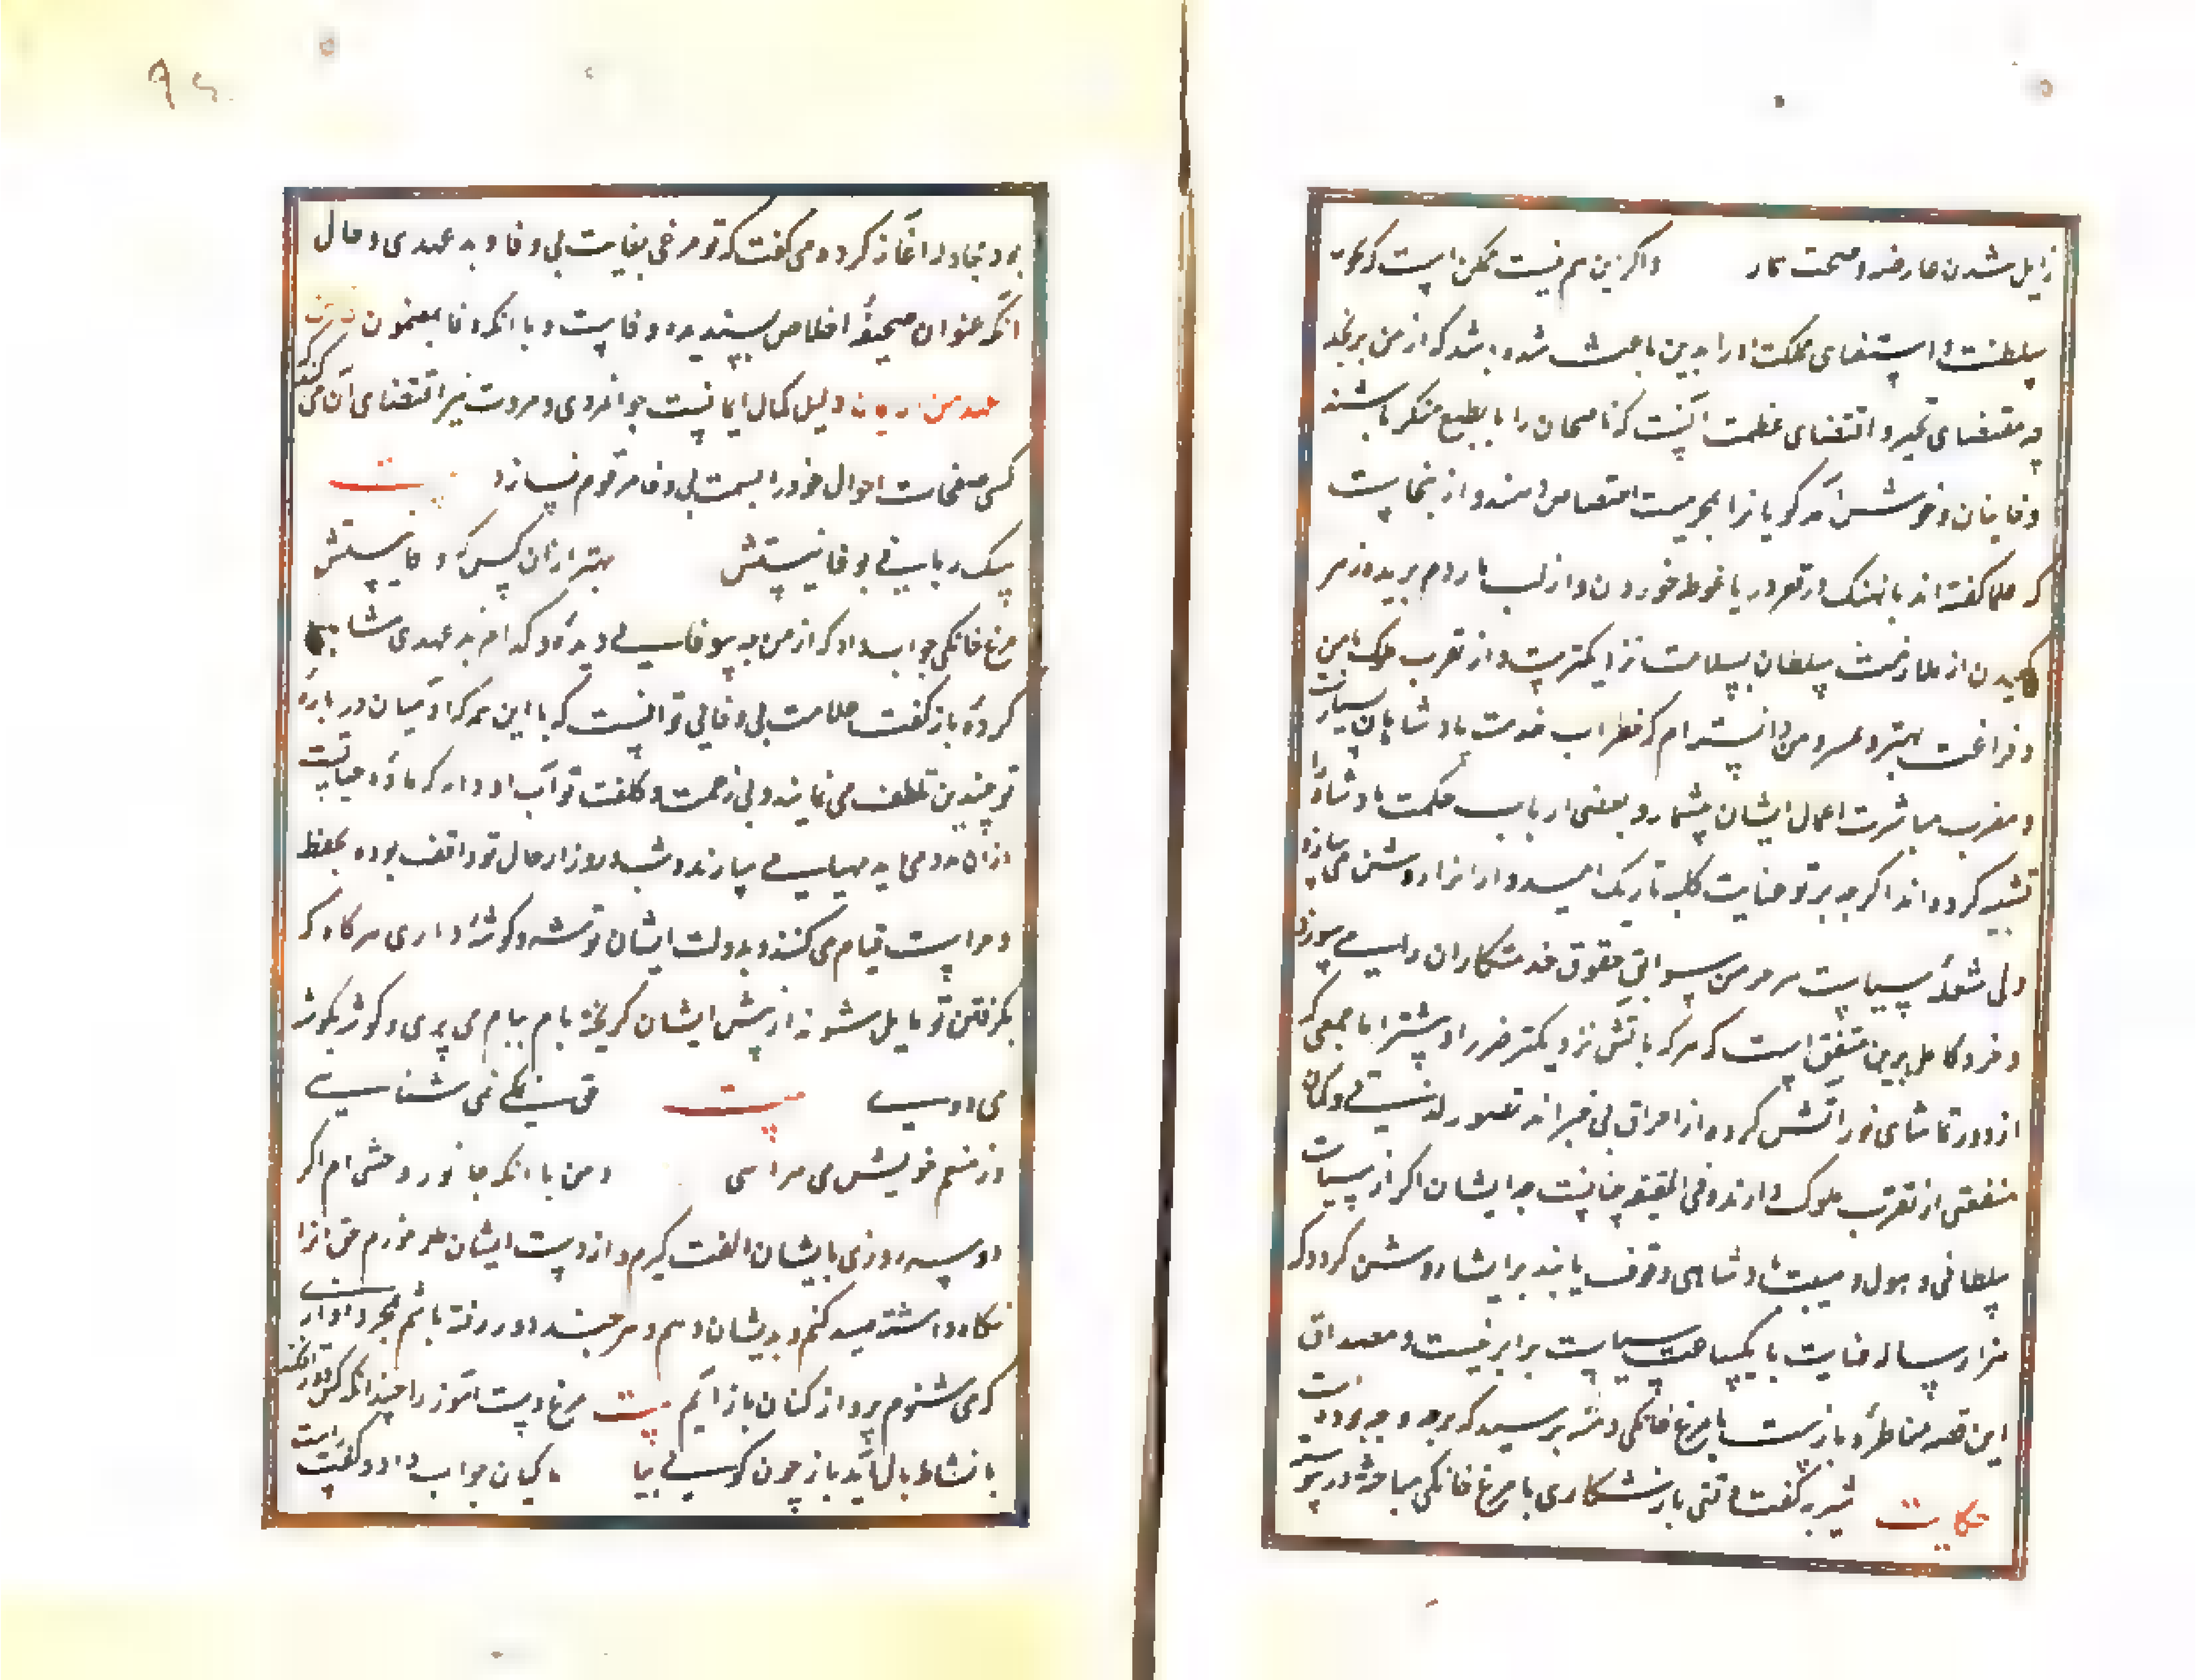 زایل شدن عارضه و صحت کار واکر این هم نیست ممکن است که نخوت
سلطنت و استغنای مملکت او را بدین باعث شده باشد که از من برنجد
چه مقتضای تجبر و اقتضای عظمت آنست که ناصحان را بالطبع منکر باشند
و خاینان و خوش آمد کویانرا بمحرمیت اختصاص دهند و از ینجاست
که علما کفته اند با نهنک در قعر دریا غوطه خوردن و از لب مار دم بریده زهر
مکیدن از ملازمت سلطان بسلامت نزدیکترست و از تقرب ملوک بامن
و فراغت بهتر و من دانسته ام که خطر اب خدمت پادشاهان بسیارست
و مضرت مباشرت اعمال ایشان بیشمار و بعضی ارباب حکمت پادشاه را
تشبیه کرده اند اکر چه پرتو عنایت کلبه تاریک امیدوارانرا روشن می سازد
ولی شعله سیاست هم خرمن سوابق حقوق خدمتکاران را می سوزد
و خرد کامل برین متفق است که هر که باتش نزدیکتر ضرر او بیشتر اما جمعی که
از دور تماشای نور اتش کرده از احراق بی خبر اند تصور لذتی و کمان
منفعتی از تقرب ملوک دارند و فی الحقیقه چنان نیست چه ایشان اکر از سیاست
سلطانی و هول و هیبت پادشاهی وقوف یابند بر ایشان روشن کردد که
هزار ساله عنایت با یکساعت سیاست برابر نیست و مصداق
این قصه مناظره بازست با مرغ خانکی دمنه پرسید که بوده است
حکایت شنزبه کفت وقتی باز شکاری با مرغ خانکی مباحثه در پیوسته
بود مجادله اغاز کرده می کفت که تو مرغی بغایت بی وفا و بد عهدی و حال
انکه عنوان صحیفه اخلاص پسندیده وفاست و با انکه وفا بمضمون
العهد من الایمان دلیل کمال ایمانست جوانمردی و مروت نیز اقتضای ان می کند که
کسی صفحات احوال خود را بسمت بی وفا مرقوم نسازد بیت
سک وفا نیستش بهتر از ان کس که وفا نیستش
مرغ خانکی جواب داد که از من چه بیوفایی دیده و کدام بد عهدی مشاهده
کرده باز کفت علامت بی وفایی تو انست که با این همه که آدمیان درباره
تو چندین تلطف می نمایند و بی زحمت و کلفت تو آب و دانه که ماده حیاتست
از ان مدد می یابد مهیا می سازند و شب و روز از حال تو واقف بوده بحفظ
و حراست قیام می کنند و بدولت ایشان توشه و کوشه داری هر کاه که
بکرفتن تو مایل شوند از پیش ایشان کریخته بام ببام می پری و کوشه بکوشه
می دوی بیت حق نمکی نمی شناسی
از منعم خویش می هراسی و من با انکه جانور وحشی ام اکر
دو سه روزی با ایشان الفت کیرم و از دست ایشان طعمه خورم حق انرا
نکاه داشته صید کنم و بدیشان دهم و هر چند دور رفته باشم بمجرد آوازی
که می شنوم پرواز کنان باز آیم بیت مرغ دست آموز را چندانکه کس دور افکند
با نشاط بال آید باز چون کویی بیا ماکیان جواب داد و کفت راست
۹۵